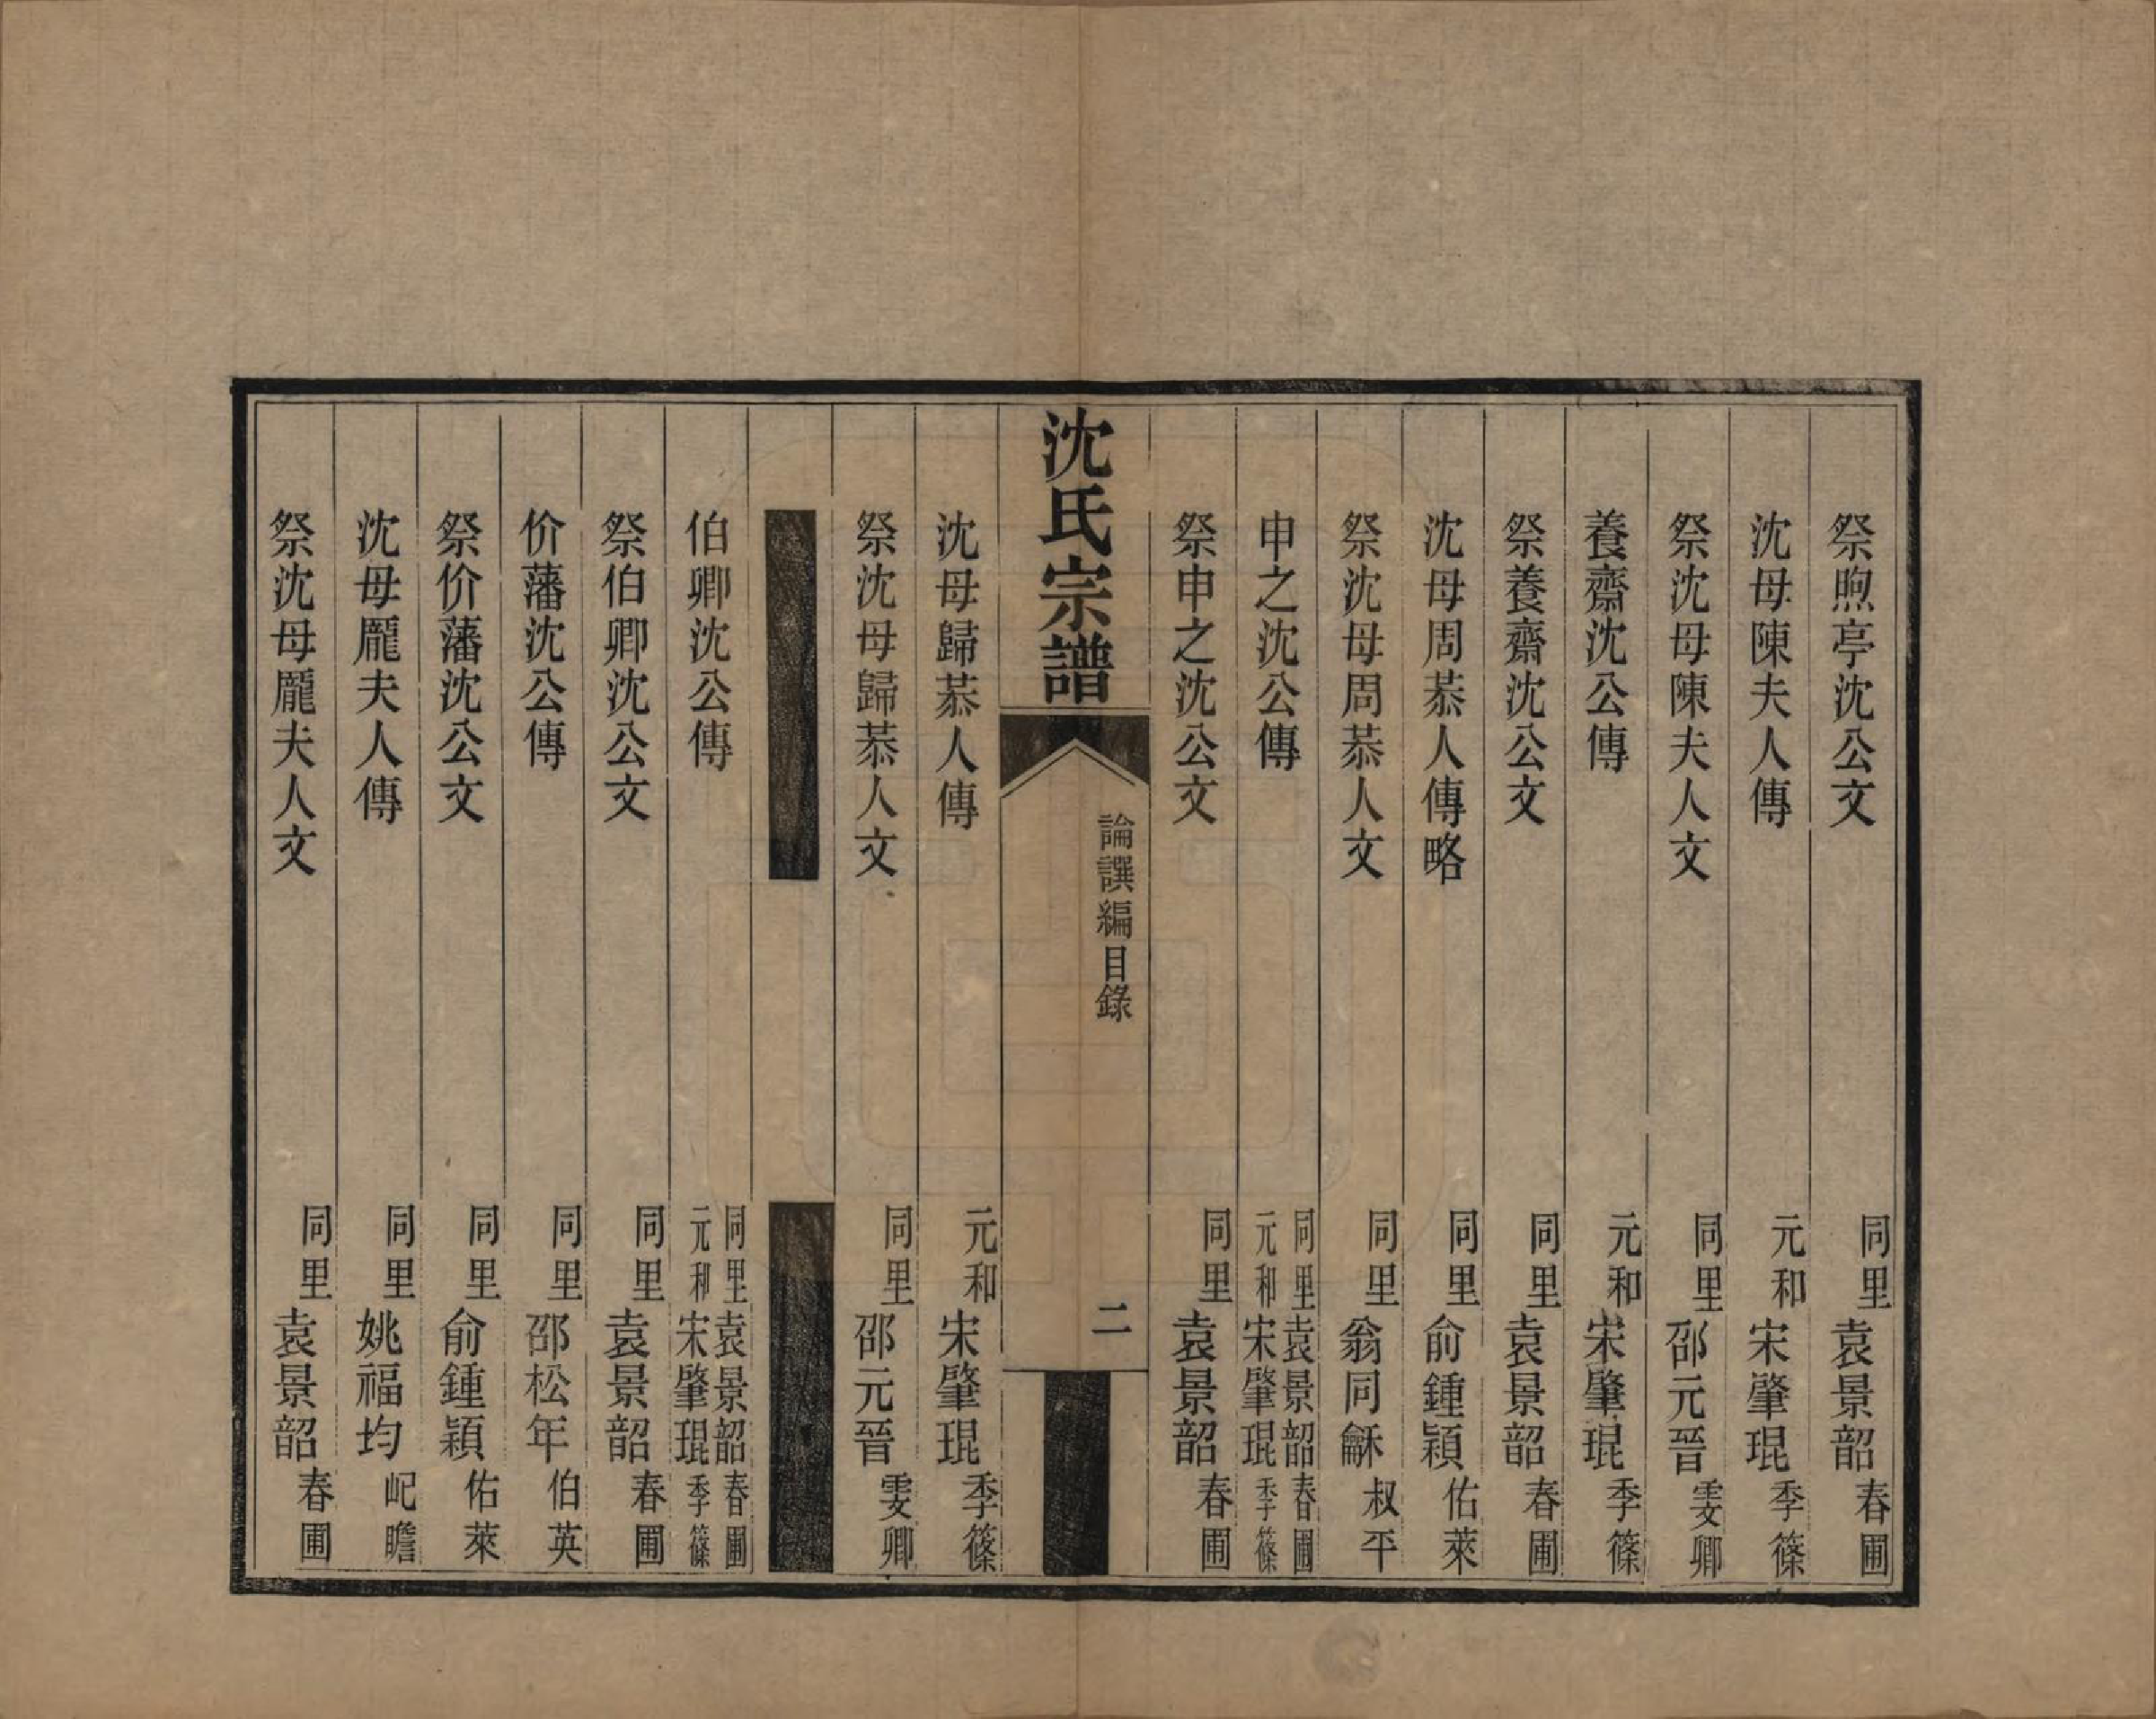 祭煦亭沈公文 同里袁景韶春圃
沈母陳夫人傳 元和宋肇琨季篠
祭沈母陳夫人文 同里邵元晉雯卿
養齋沈公傳 元和宋肇琨季篠
祭養齋沈公文 同里袁景韶春圃
沈母周恭人傳略 同里俞鍾穎佑萊
祭沈母周恭人文 同里翁同龢叔平
申之沈公傳 同里袁景韶春圃
元和宋肇琨季篠
祭申之沈公文 同里袁景韶春圃
沈氏宗譜 論譔編目錄 二
沈母歸恭人傳 元和宋肇琨季篠
祭沈母歸恭人文 同里邵元晉雯卿
伯卿沈公傳 同里袁景韶春圃
元和宋肇琨季篠
祭伯卿沈公文 同里袁景韶春圃
价藩沈公傳 同里邵松年伯英
祭价藩沈公文 同里俞鍾穎佑萊
沈母龐夫人傳 同里姚福均屺瞻
祭沈母龐夫人文 同里袁景韶春圃